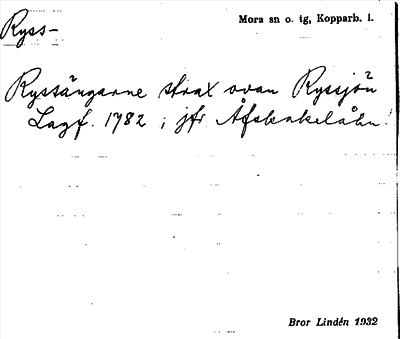 Ryss-
Mora sn o. tg, Kopparb. l.
Ryssängarne strax ovan Ryssjön
Lagf. 1782 ; jfr Åfskakelåhn.
Bror Lindén 1932